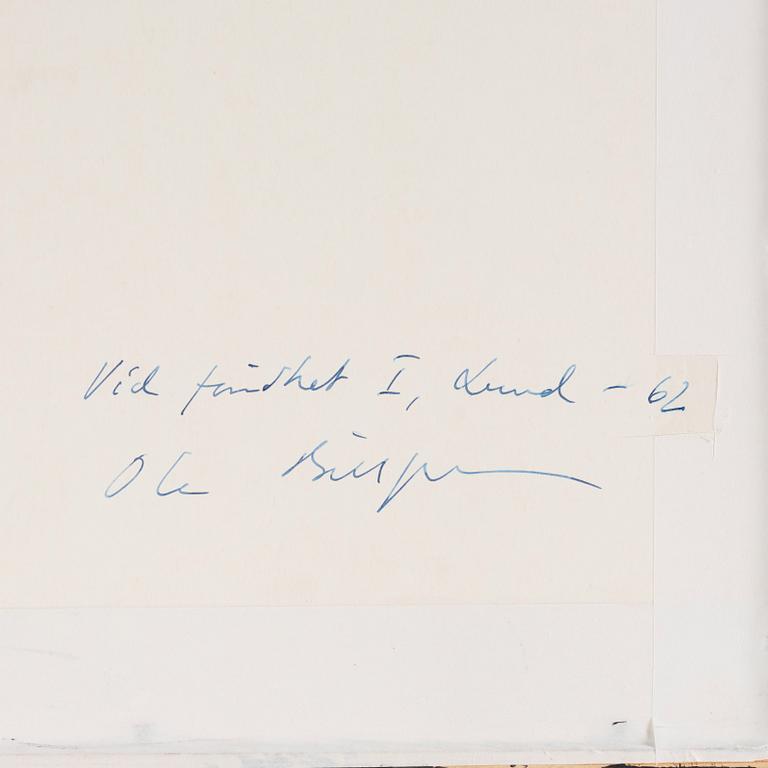 Vid fönstret I, Lund - 62
Ola Billgren